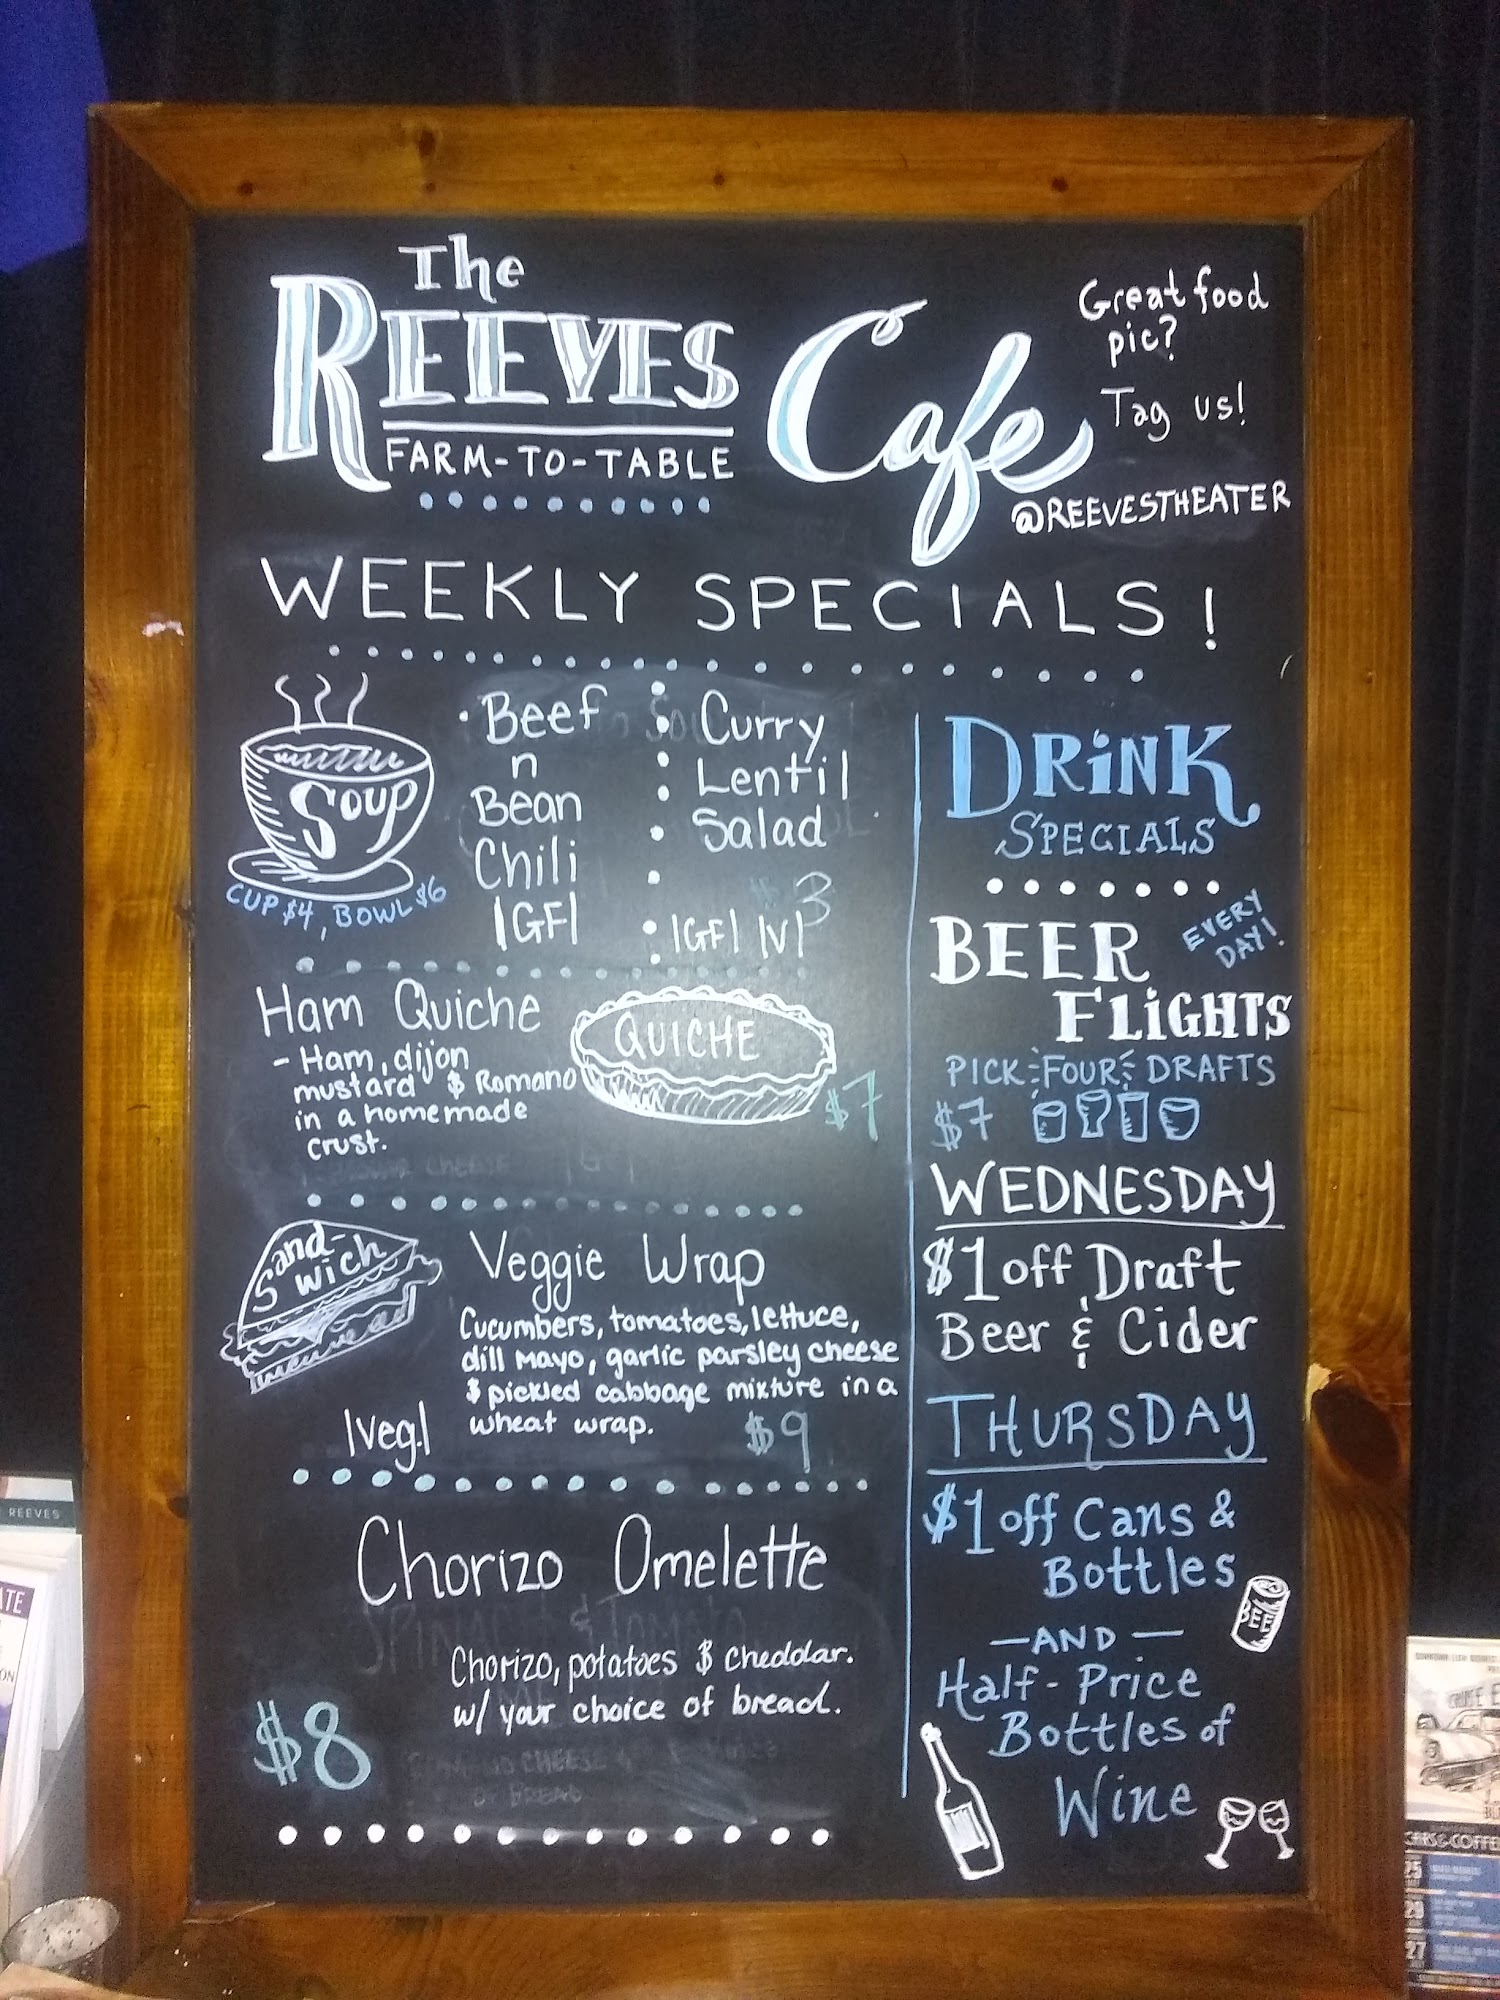 The
REEVES Cafe
FARM-TO-TABLE
Great food
pic?
Tag us!
@REEVESTHEATER
WEEKLY SPECIALS!
Soup
CUP $4, BOWL $6
Beef
n
Bean
Chili
|GF|
Curry
Lentil
Salad
$3
|GF| |V|
Ham Quiche
- Ham, dijon
mustard & Romano
in a homemade
crust.
QUICHE
$7
Sand-
wich
Veggie Wrap
Cucumbers, tomatoes, lettuce,
dill mayo, garlic parsley cheese
& pickled cabbage mixture in a
wheat wrap.
$9
|veg.|
Chorizo Omelette
Chorizo, potatoes & cheddar.
w/ your choice of bread.
$8
DRiNK
SPECIALS
BEER
FLiGHTS
EVERY
DAY!
PICK FOUR DRAFTS
$7
WEDNESDAY
$1 off Draft
Beer & Cider
THURSDAY
$1 off Cans &
Bottles
BEE
—AND—
Half-Price
Bottles of
Wine
REEVES
ATE
ON
CARS&COFFE
25
27